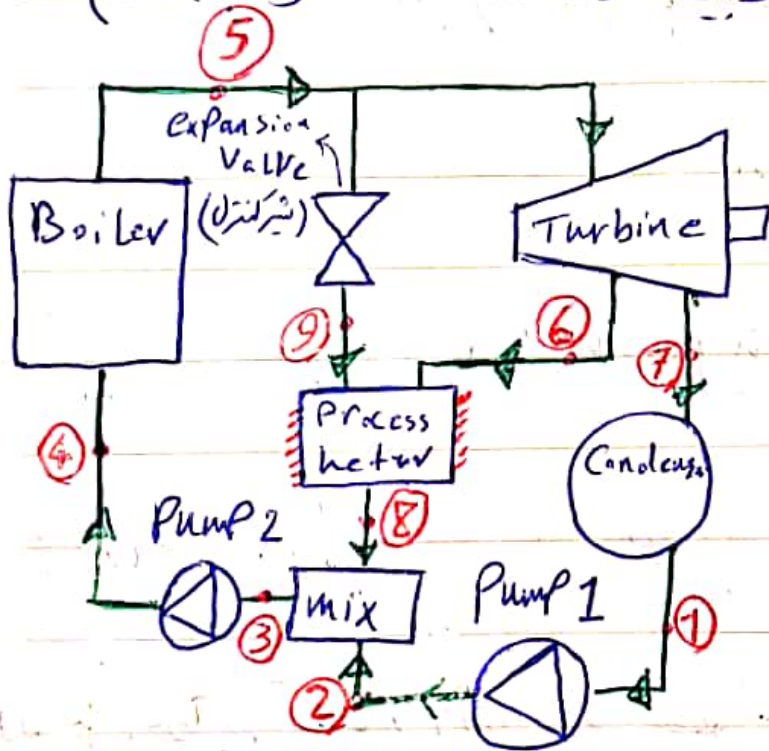 5
Expansion
Valve
(شیر کنترل)
Boiler
Turbine
9
6
7
Process
heter
Condenser
4
8
Pump 2
mix
Pump 1
3
1
2